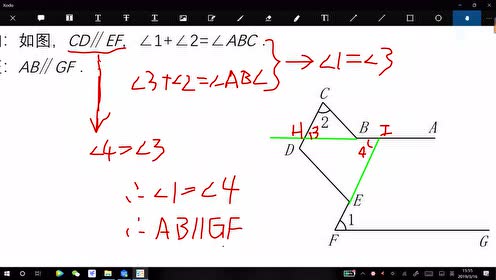 Xodo
: 如图, CD∥EF, ∠1+∠2=∠ABC.
: AB∥GF.
∠3+∠2=∠ABC
→∠1=∠3
∠4=∠3
∴∠1=∠4
∴AB∥GF
C
2
H 3 B I A
D 4
E
1
F G
15:55
2019/3/16